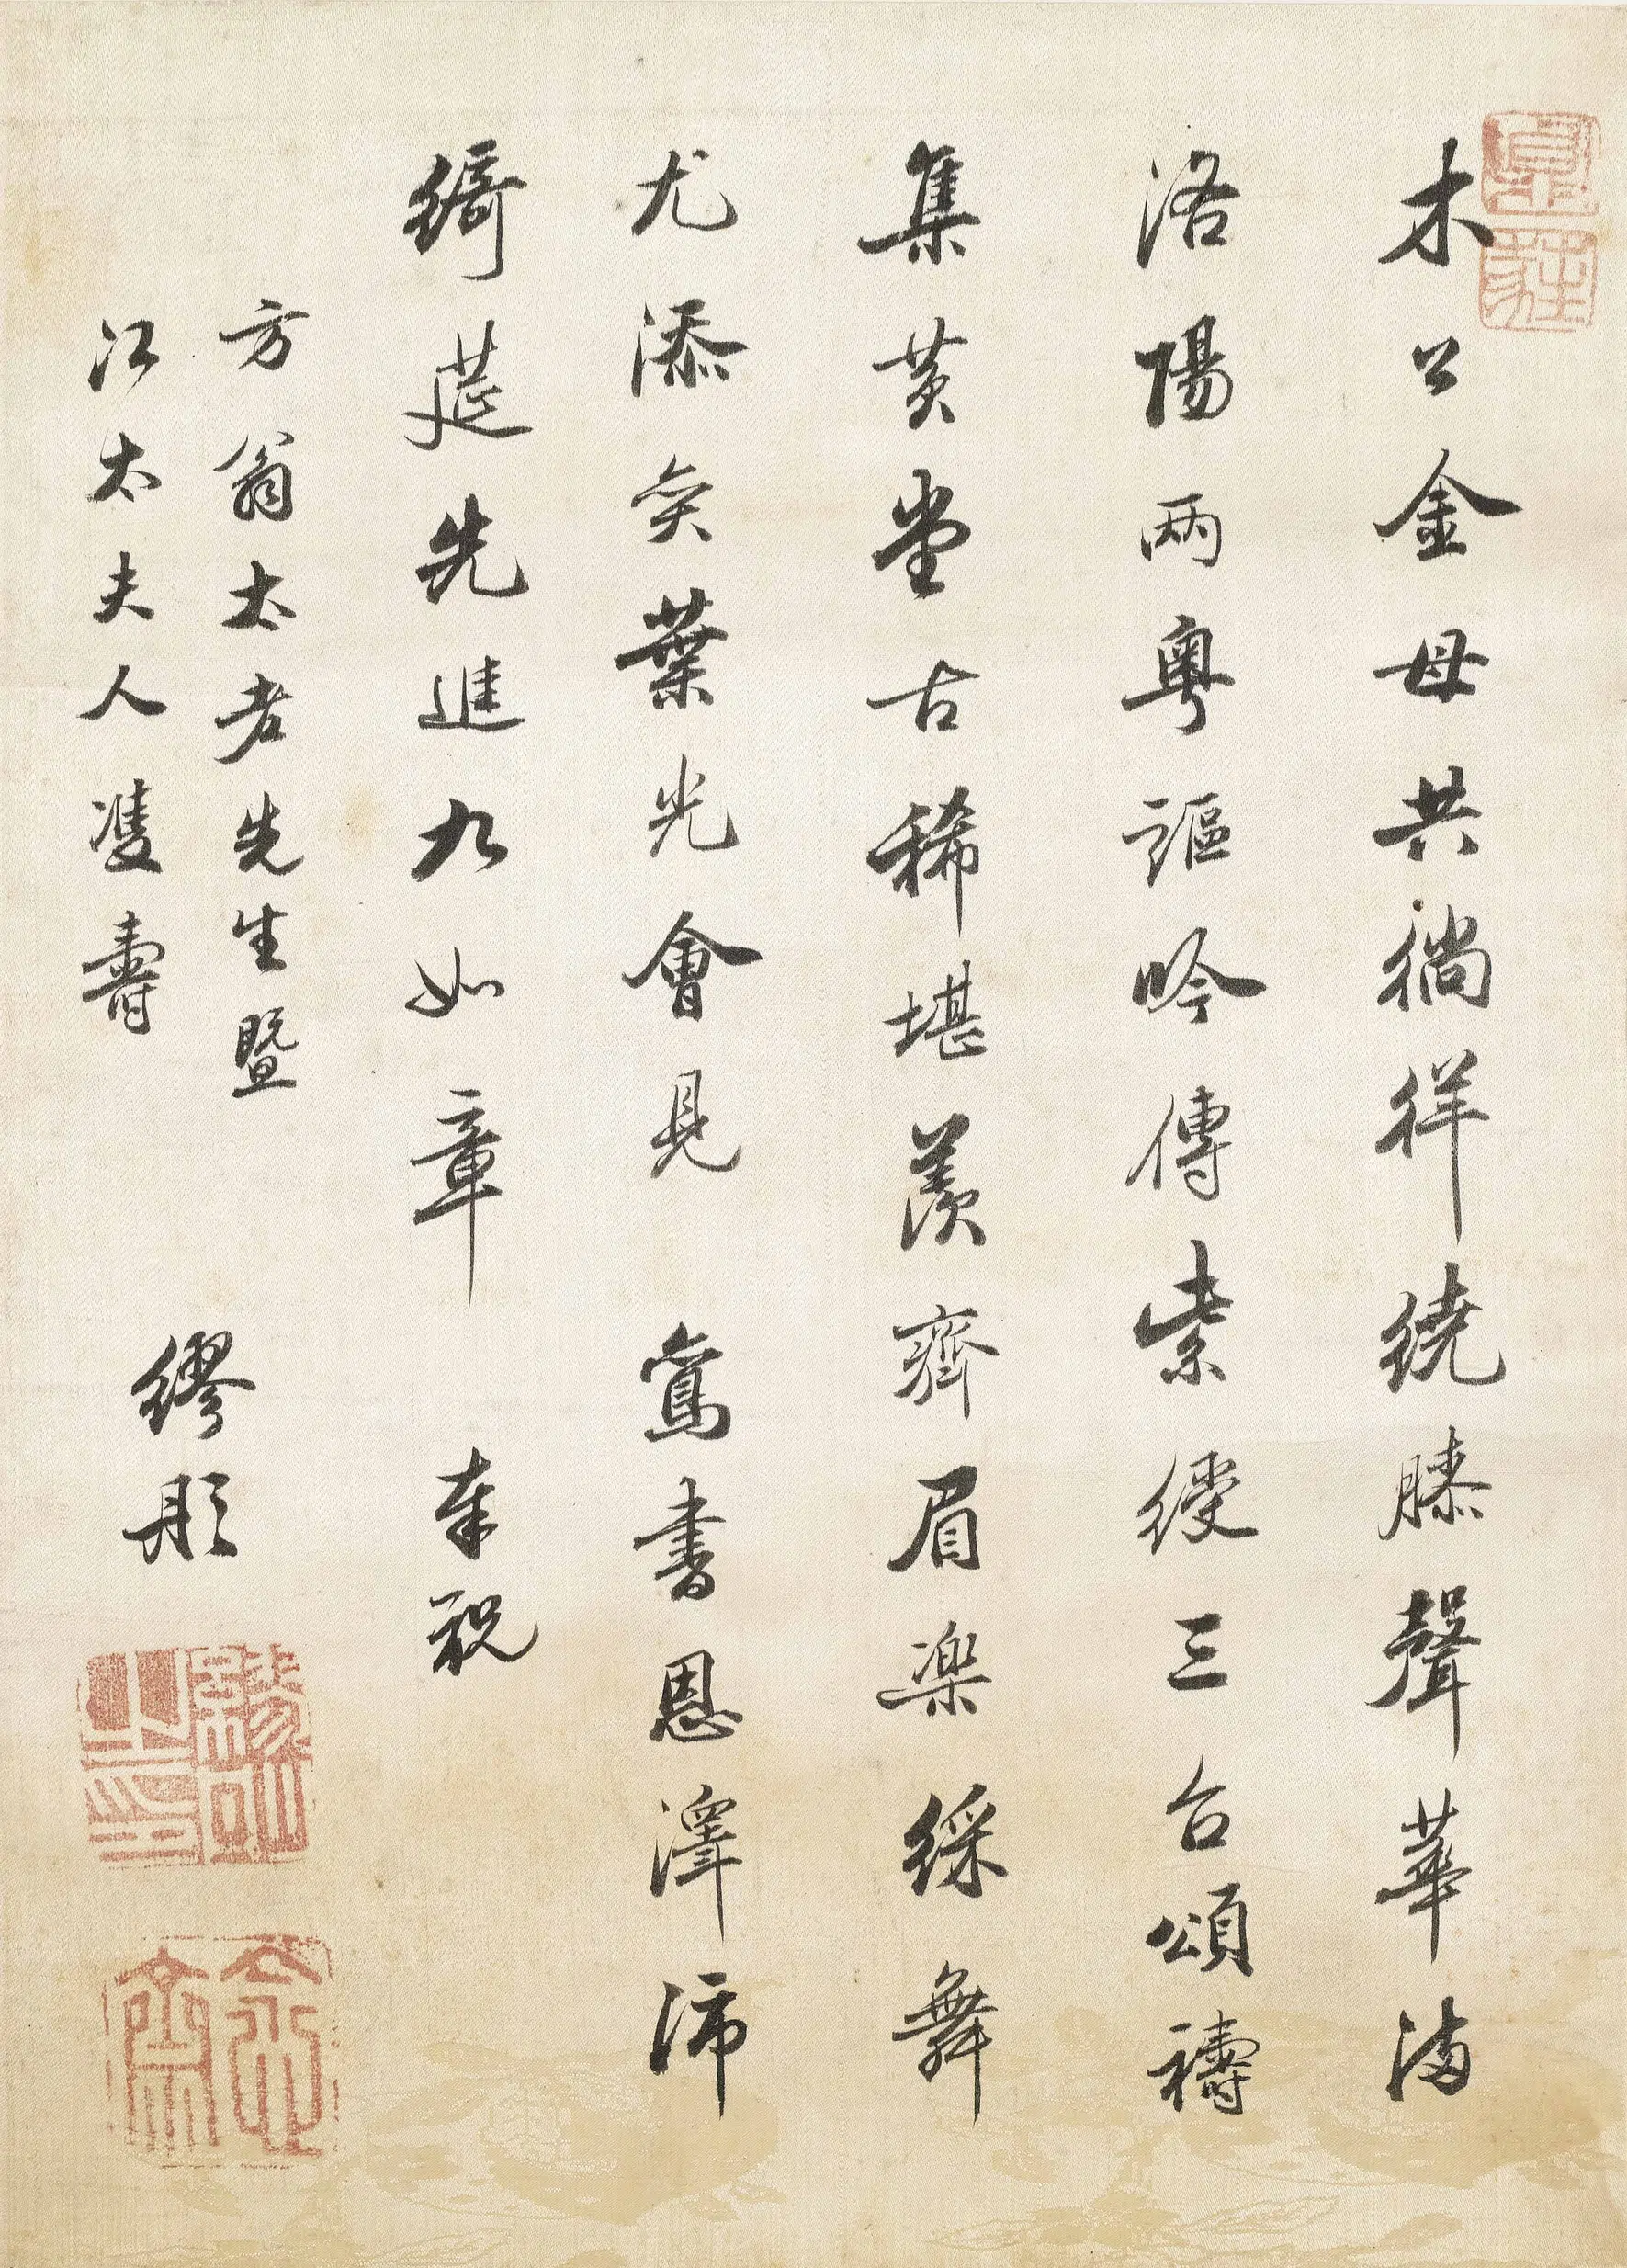 木公金母共徜徉繞膝聲華滿
洛陽兩粵謳吟傳紫綬三台頌禱
集黃堂古稀堪羨齊眉樂綵舞
尤添奕葉光會見鸞書恩澤沛
綺莚先進九如章 奉祝
方翁太老先生暨
江太夫人雙壽
繆彤
繆彤之印
念齋